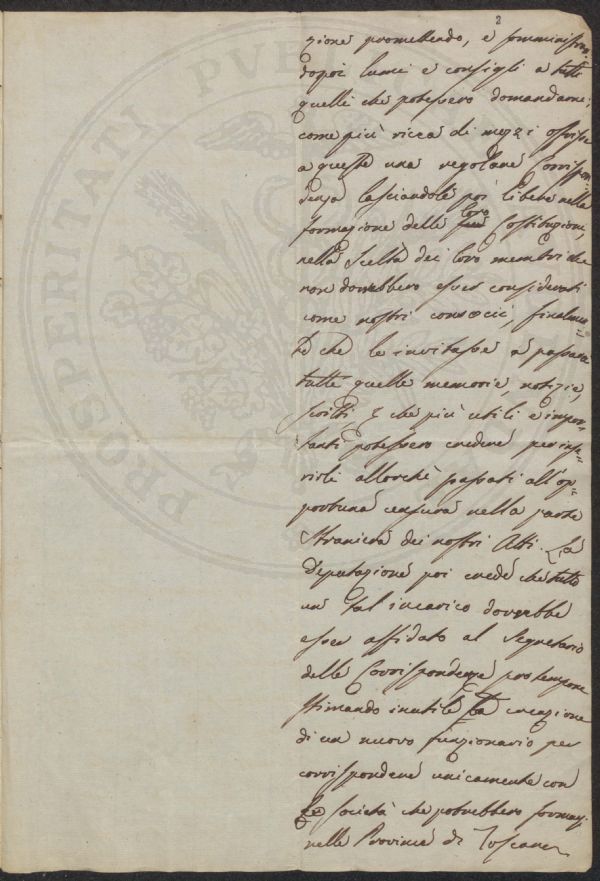 2
zione promettendo, e somministran
dopoi lumi e consigli a tutti
quelli che potessero domandarne:
come più ricca di mezzi offrisse
a queste una regolare Corrispon
denza lasciandole poi libere nella
formazione delle loro Costituzioni,
nella scelta dei loro membri che
non dovrebbero esser considerati
come nostri consocii, finalmen=
te che le invitasse a passare
tutte quelle memorie, notizie,
scritti, che più utili e impor=
tanti potessero credere per inse=
rirle allorchè passati all'op=
portuna censura nella parte
straniera dei nostri Atti. La
Deputazione poi crede che tutto
un tal incarico dovrebbe
esser affidato al Segretario
delle Corrispondenze pro tempore
stimando inutile la creazione
di un nuovo funzionario per
corrispondere unicamente con
le società che potrebbero formarsi
nelle Provincie di Toscana
PROSPERITATI PUB